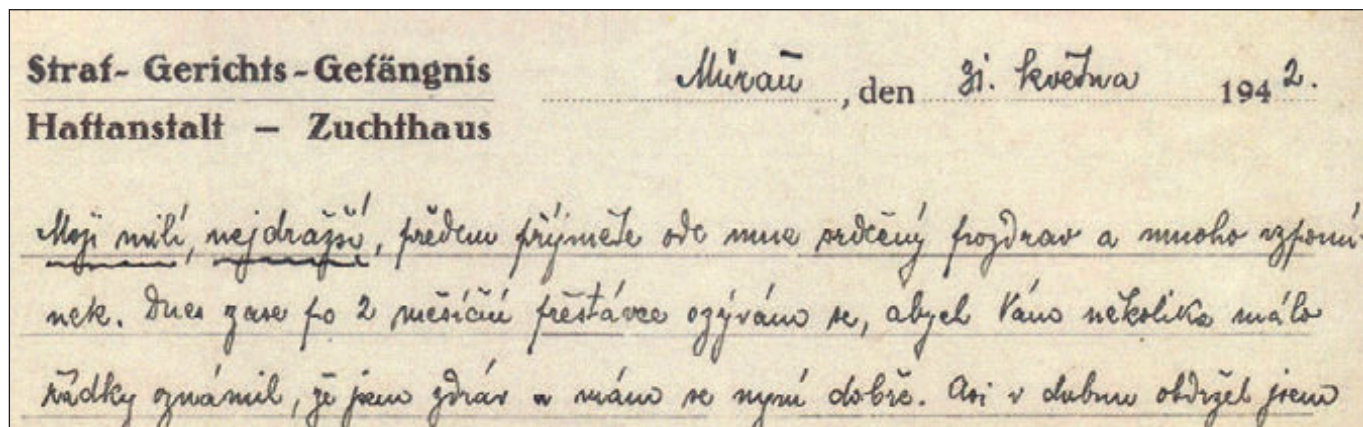 Straf- Gerichts-Gefängnis
Mürau, den 31. května 1942.
Haftanstalt – Zuchthaus
Moji milí, nejdražší, předem přijměte ode mne srdečný pozdrav a mnoho vzpomí-
nek. Dnes zase po 2 měsíční přestávce ozývám se, abych Vám několika málo
řádky oznámil, že jsem zdráv a mám se nyní dobře. Asi v dubnu obdržel jsem